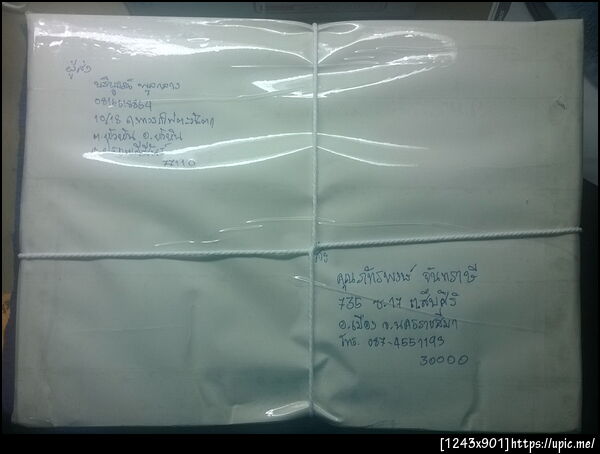 ผู้ส่ง
0816518864
10/18
ต.หัวหิน อ.หัวหิน
77110
ส่ง
คุณภัทรพงษ์ จันทราษี
735 ซ.17 ถ.สืบศิริ
อ.เมือง จ.นครราชสีมา
โทร. 087-4551193
30000
[1243x901]https://upic.me/